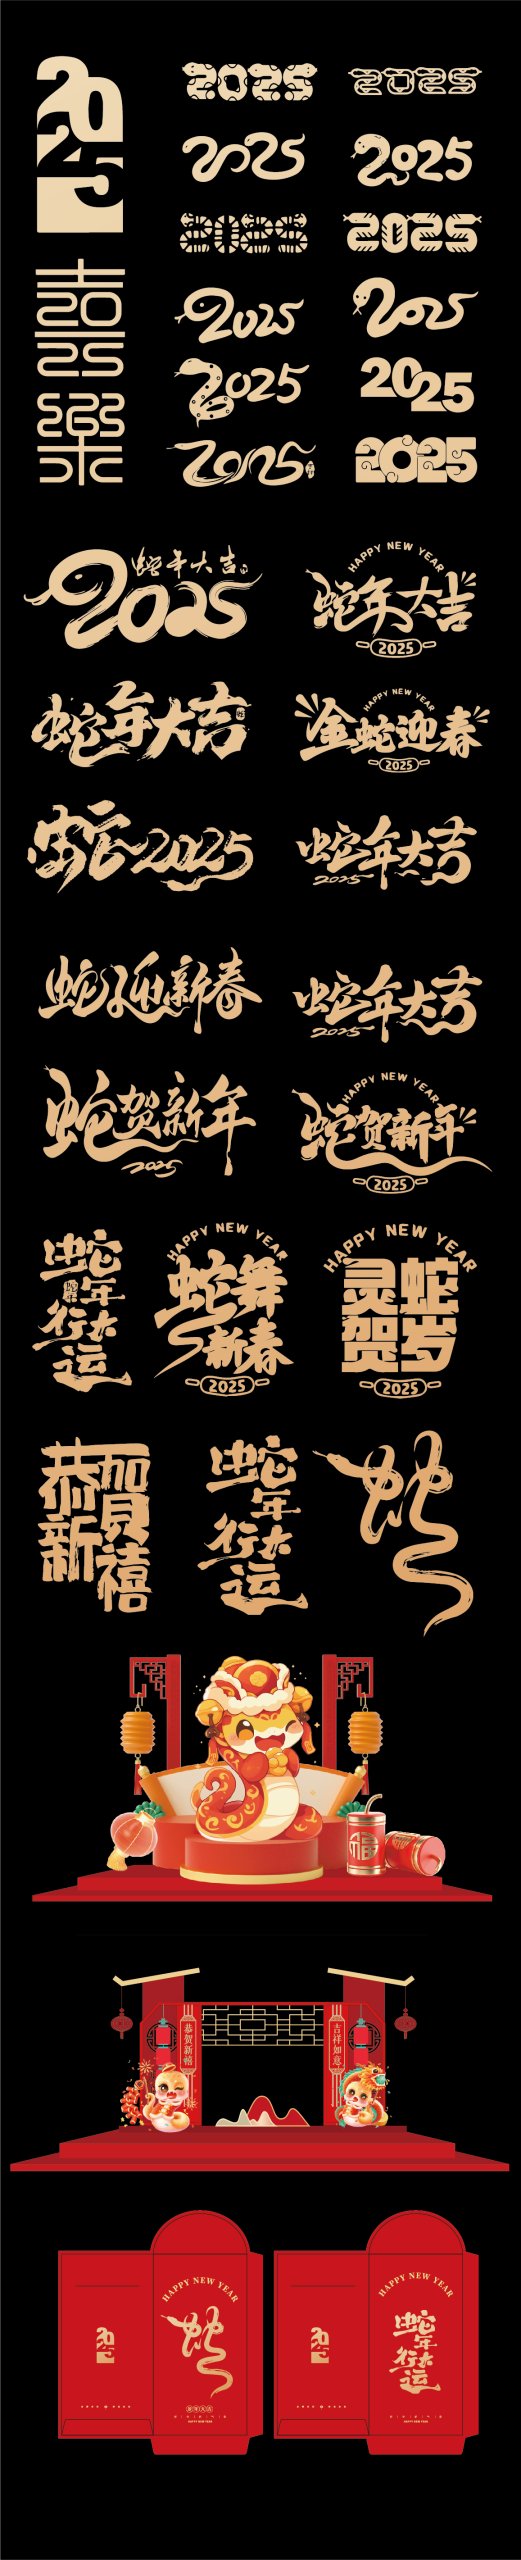 2025
2025
2025
2025
2025
2025
2025
2025
2025
喜
2025
乐
2025
2025
2025
2025
蛇年大吉
2025
HAPPY NEW YEAR
蛇年大吉
2025
蛇年大吉
HAPPY NEW YEAR
金蛇迎春
2025
蛇2025
蛇年大吉
2025
蛇迎新春
蛇年大吉
2025
蛇贺新年
2025
HAPPY NEW YEAR
蛇贺新年
2025
蛇年
行大
运
HAPPY NEW YEAR
蛇舞
新春
2025
HAPPY NEW YEAR
灵蛇
贺岁
2025
恭賀
新禧
蛇年
行大
运
蛇
福
恭贺新禧
吉祥如意
HAPPY NEW YEAR
蛇
2025
HAPPY NEW YEAR
HAPPY NEW YEAR
蛇年
行大
运
2025
HAPPY NEW YEAR